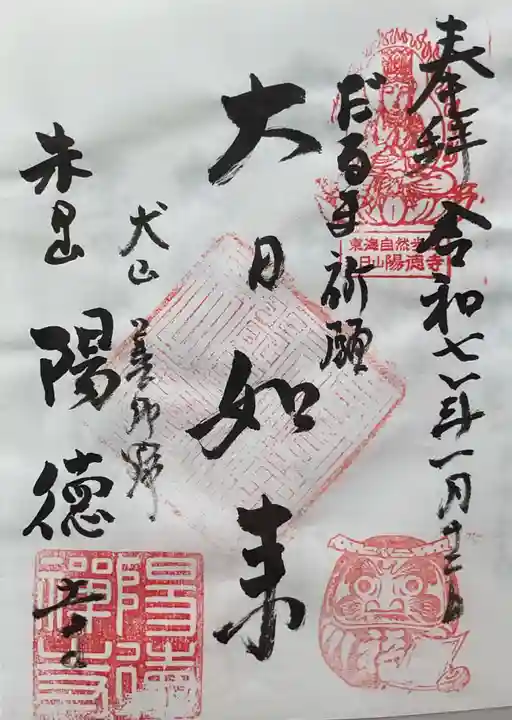 奉拝 令和七年一月廿二日
東海自然歩
日山陽徳寺
だるま祈願
大日如来
犬山 善師野
朱日山 陽徳寺
陽徳
禅寺
福